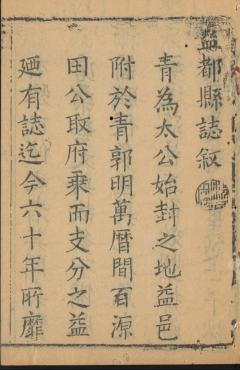 益都縣誌叙
青為太公始封之地益邑
附於青郭明萬曆間百源
田公取府乘而支分之益
廼有誌迄今六十年所靡